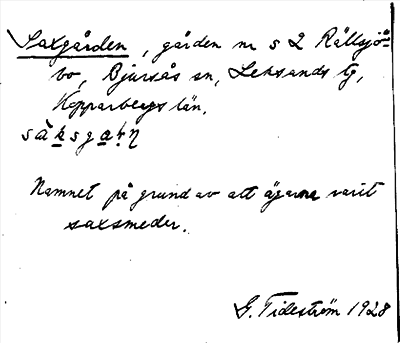 Saxgården, gården nr s 2 Rällsjö-
bo, Bjursås sn, Leksands tg,
Kopparbergs län.
sàksga
Namnet på grund av att ägarna varit
saxsmeder.
G. Tideström 1928